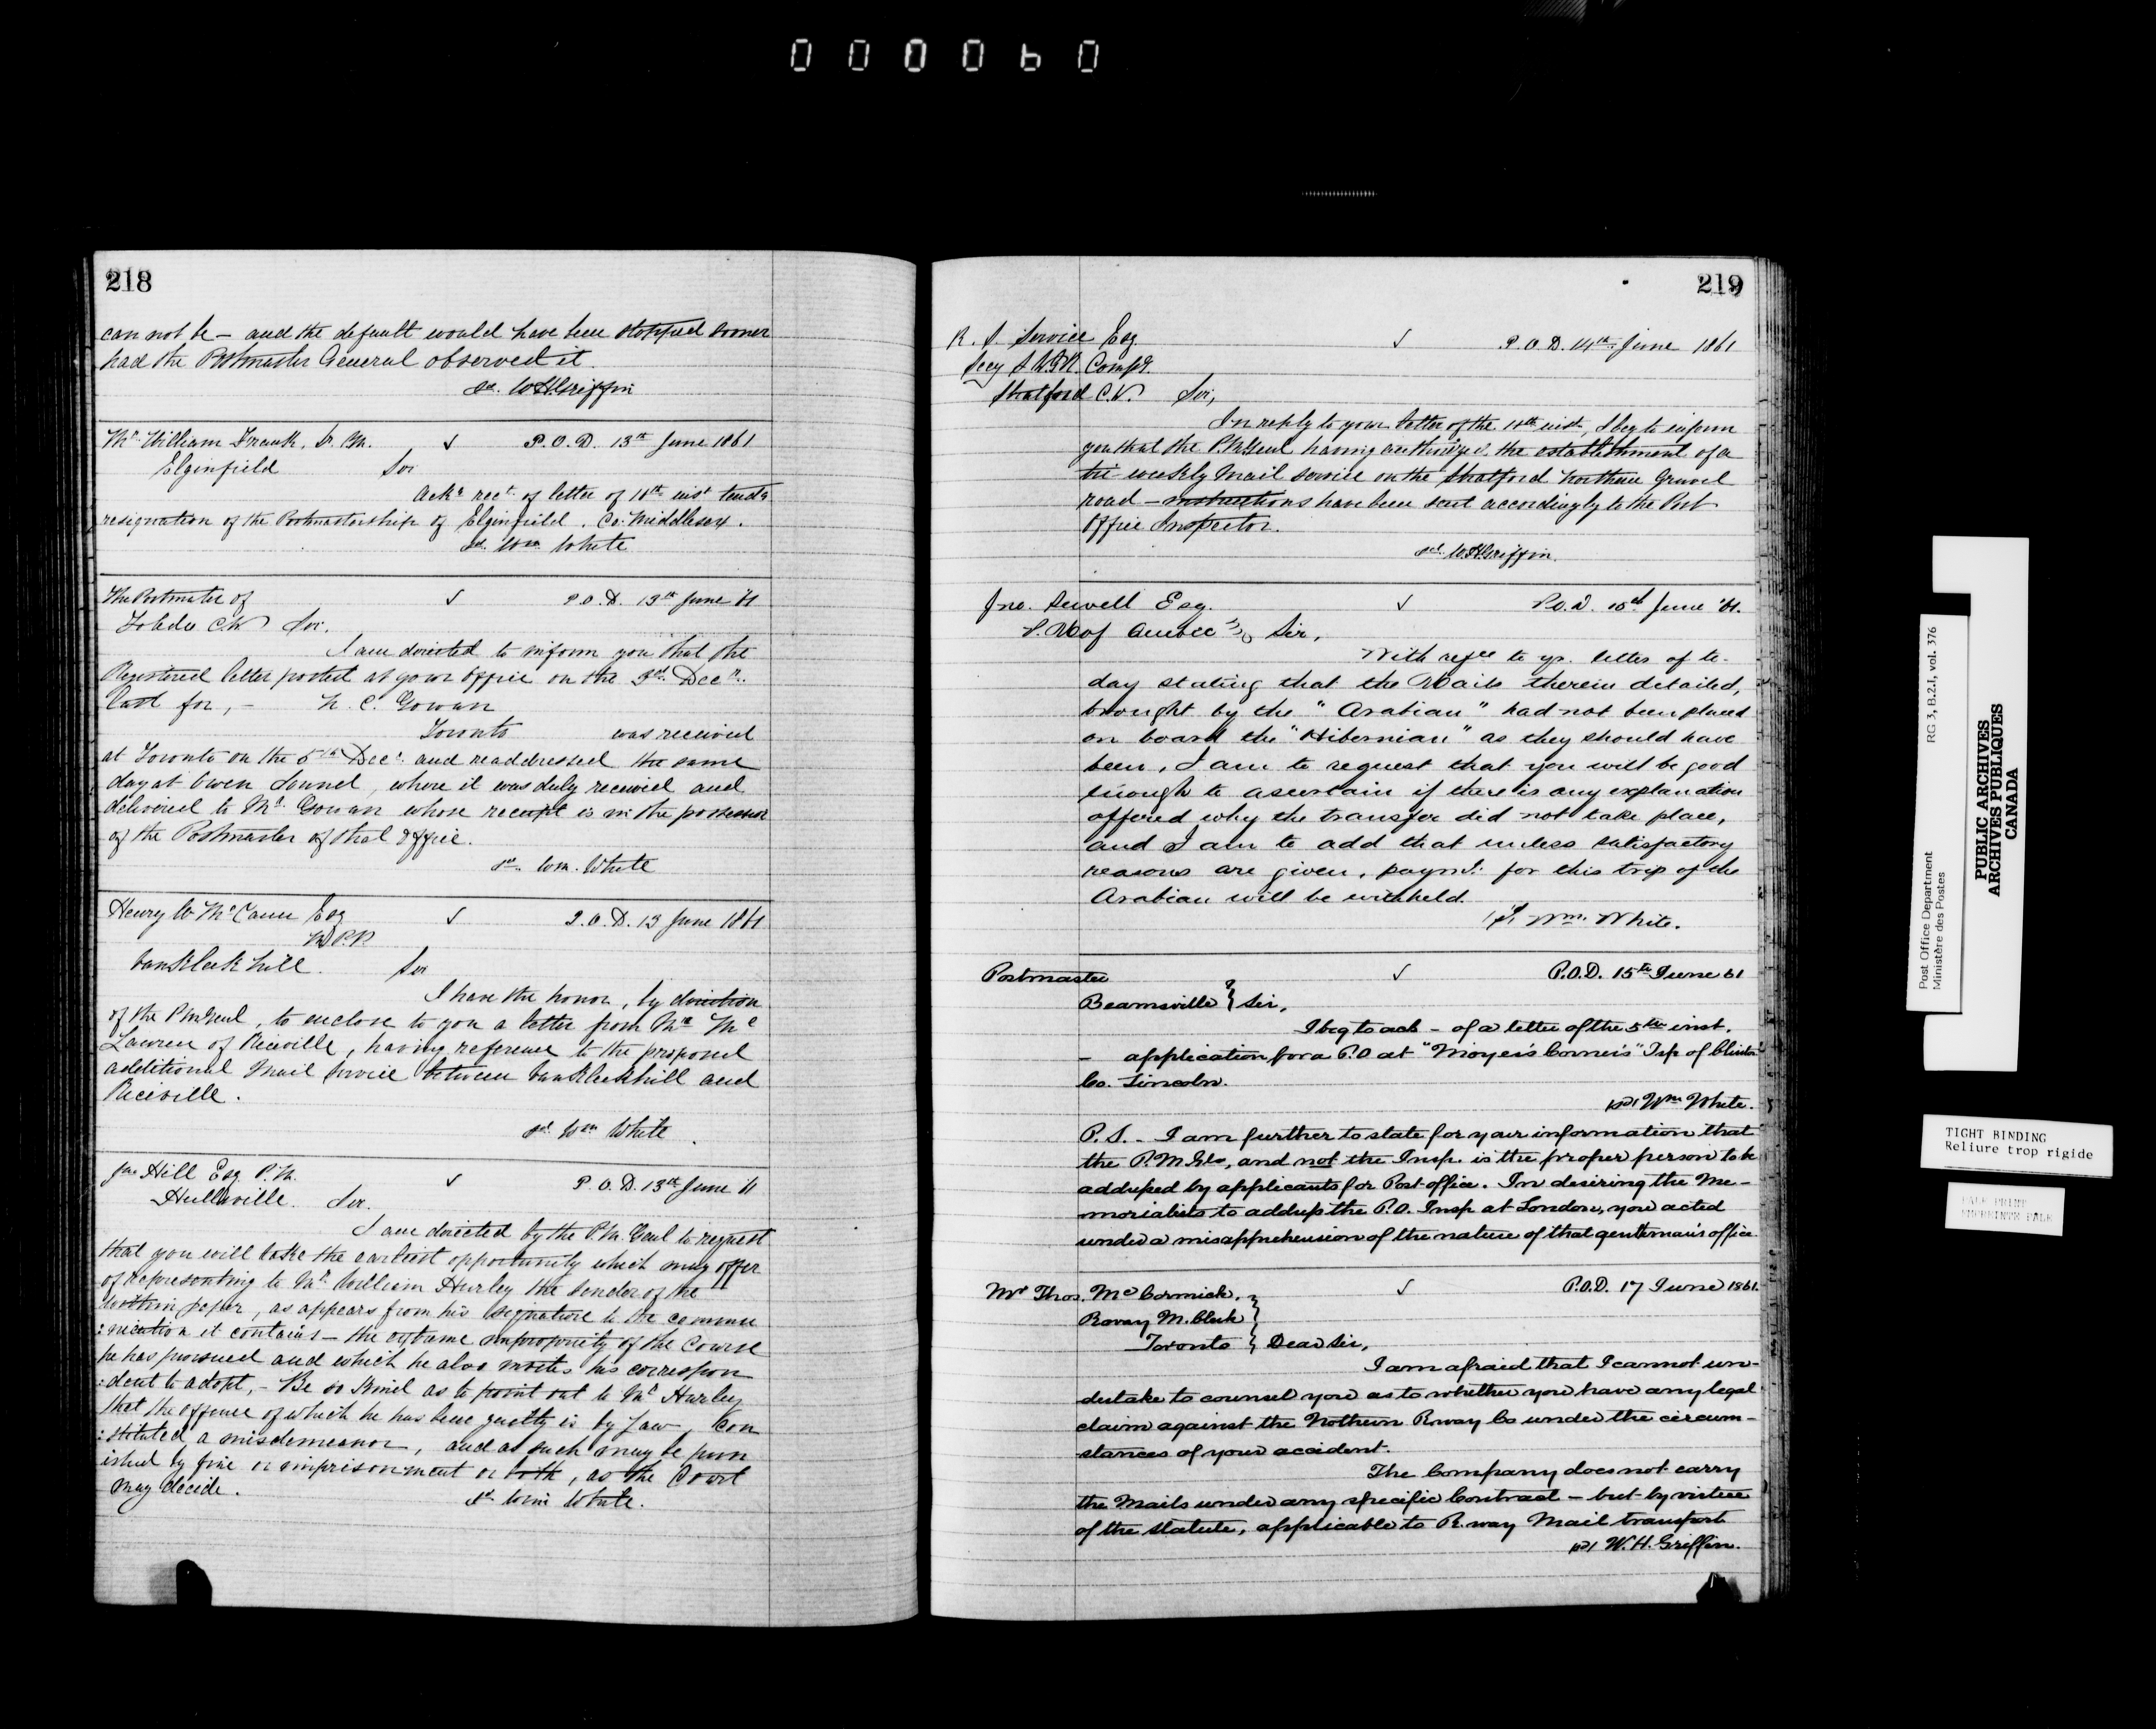 000060
218
can not be – and the default would have been stopped sooner
had the Postmaster General observed it.
sd. W H Griffin
Mr. William Frank, Sr. P.M. √ P.O.D. 13th June 1861
Elginfield Sir
Ackg rect. of letter of 10th inst tendg
resignation of the Postmastership of Elginfield. Co. Middlesex.
sd. Wm White
The Postmaster of √ P.O.D. 13th June '61
Toledo C.W. Sir.
I am directed to inform you that the
Registered letter posted at your Office on the 3rd Decr.
last for, – N. C. Gowan
Toronto was received
at Toronto on the 5th Decr. and readdressed the same
day at Owen Sound, where it was duly received and
delivered to Mr. Gowan whose receipt is in the possession
of the Postmaster of that Office.
sd. Wm. White
Henry W McCann Esq √ P.O.D. 13 June 1861
M.P.P.
VanKleek hill. Sir
I have the honor, by direction
of the P M Genl, to enclose to you a letter from Mr. Mc
Lawren of Riceville, having reference to the proposed
additional Mail Service between VanKleekhill and
Riceville.
sd. Wm White
Jno Hill Esq P.M. √ P.O.D. 13th June '61
Hullsville. Sir.
I am directed by the P.M. Genl to request
that you will take the earliest opportunity which may offer
of representing to Mr. William Hurley the sender of the
within paper, as appears from his signature to the commu
:nication it contains – the extreme impropriety of the Course
he has pursued and which he also invites his correspon
:dent to adopt, – Be so kind as to point out to Mr Hurley
that the offence of which he has been guilty is by Law, Con
:stituted a misdemeanor, and as such may be pun
ished by fine or imprisonment or both, as the Court
may decide.
sd. Wm White.
219
R. S. Service Esq. √ P.O.D. 14th June 1861
Secy Compy.
Stratford C.W. Sir,
In reply to your letter of the 10th inst, I beg to inform
you that the P.M Genl having authorized the establishment of a
tri-weekly Mail Service on the Stratford Northern Gravel
road – instructions have been sent accordingly to the Post
Office Inspector.
sd. W. H Griffin.
Jno. Sewell Esq. √ P.O.D. 15th June '61.
P.M of Quebec Sir,
With refce to yr. letter of to-
day stating that the Mails therein detailed,
brought by the "Arabian" had not been placed
on board the "Hibernian" as they should have
been, I am to request that you will be good
enough to ascertain if there is any explanation
offered why the transfer did not take place,
and I am to add that unless satisfactory
reasons are given, paymt: for this trip of the
Arabian will be withheld.
sd. Wm. White.
Postmaster √ P.O.D. 15th June 61
Beamsville } Sir,
I beg to ack – of a letter of the 5th inst.
– application for a P.O at "Moyer's Corner's" Tsp of Clinton
Co. Lincoln.
sd/ Wm White.
P.S. – I am further to state for your information that
the P.M Gl, and not the Insp. is the proper person to be
addressed by applicants for Post office. In desiring the Me-
morialists to address the P.O. Insp at London, you acted
under a misapprehension of the nature of that gentleman's office.
Mr Thos. McCormick, √ P.O.D. 17 June 1861.
Rway M. Clerk }
Toronto } Dear Sir,
I am afraid that I cannot un-
dertake to counsel you as to whether you have any legal
claim against the Nothern Rway Co under the circum-
stances of your accident.
The Company does not carry
the Mails under any specific Contract – but by virtue
of the statute, applicable to R.way Mail transport
sd/ W. H. Griffin.
Post Office Department RG 3, B.2.I, vol. 376
Ministère des Postes
PUBLIC ARCHIVES
ARCHIVES PUBLIQUES
CANADA
TIGHT BINDING
Reliure trop rigide
PALE PRINT
EMPREINTE PALE